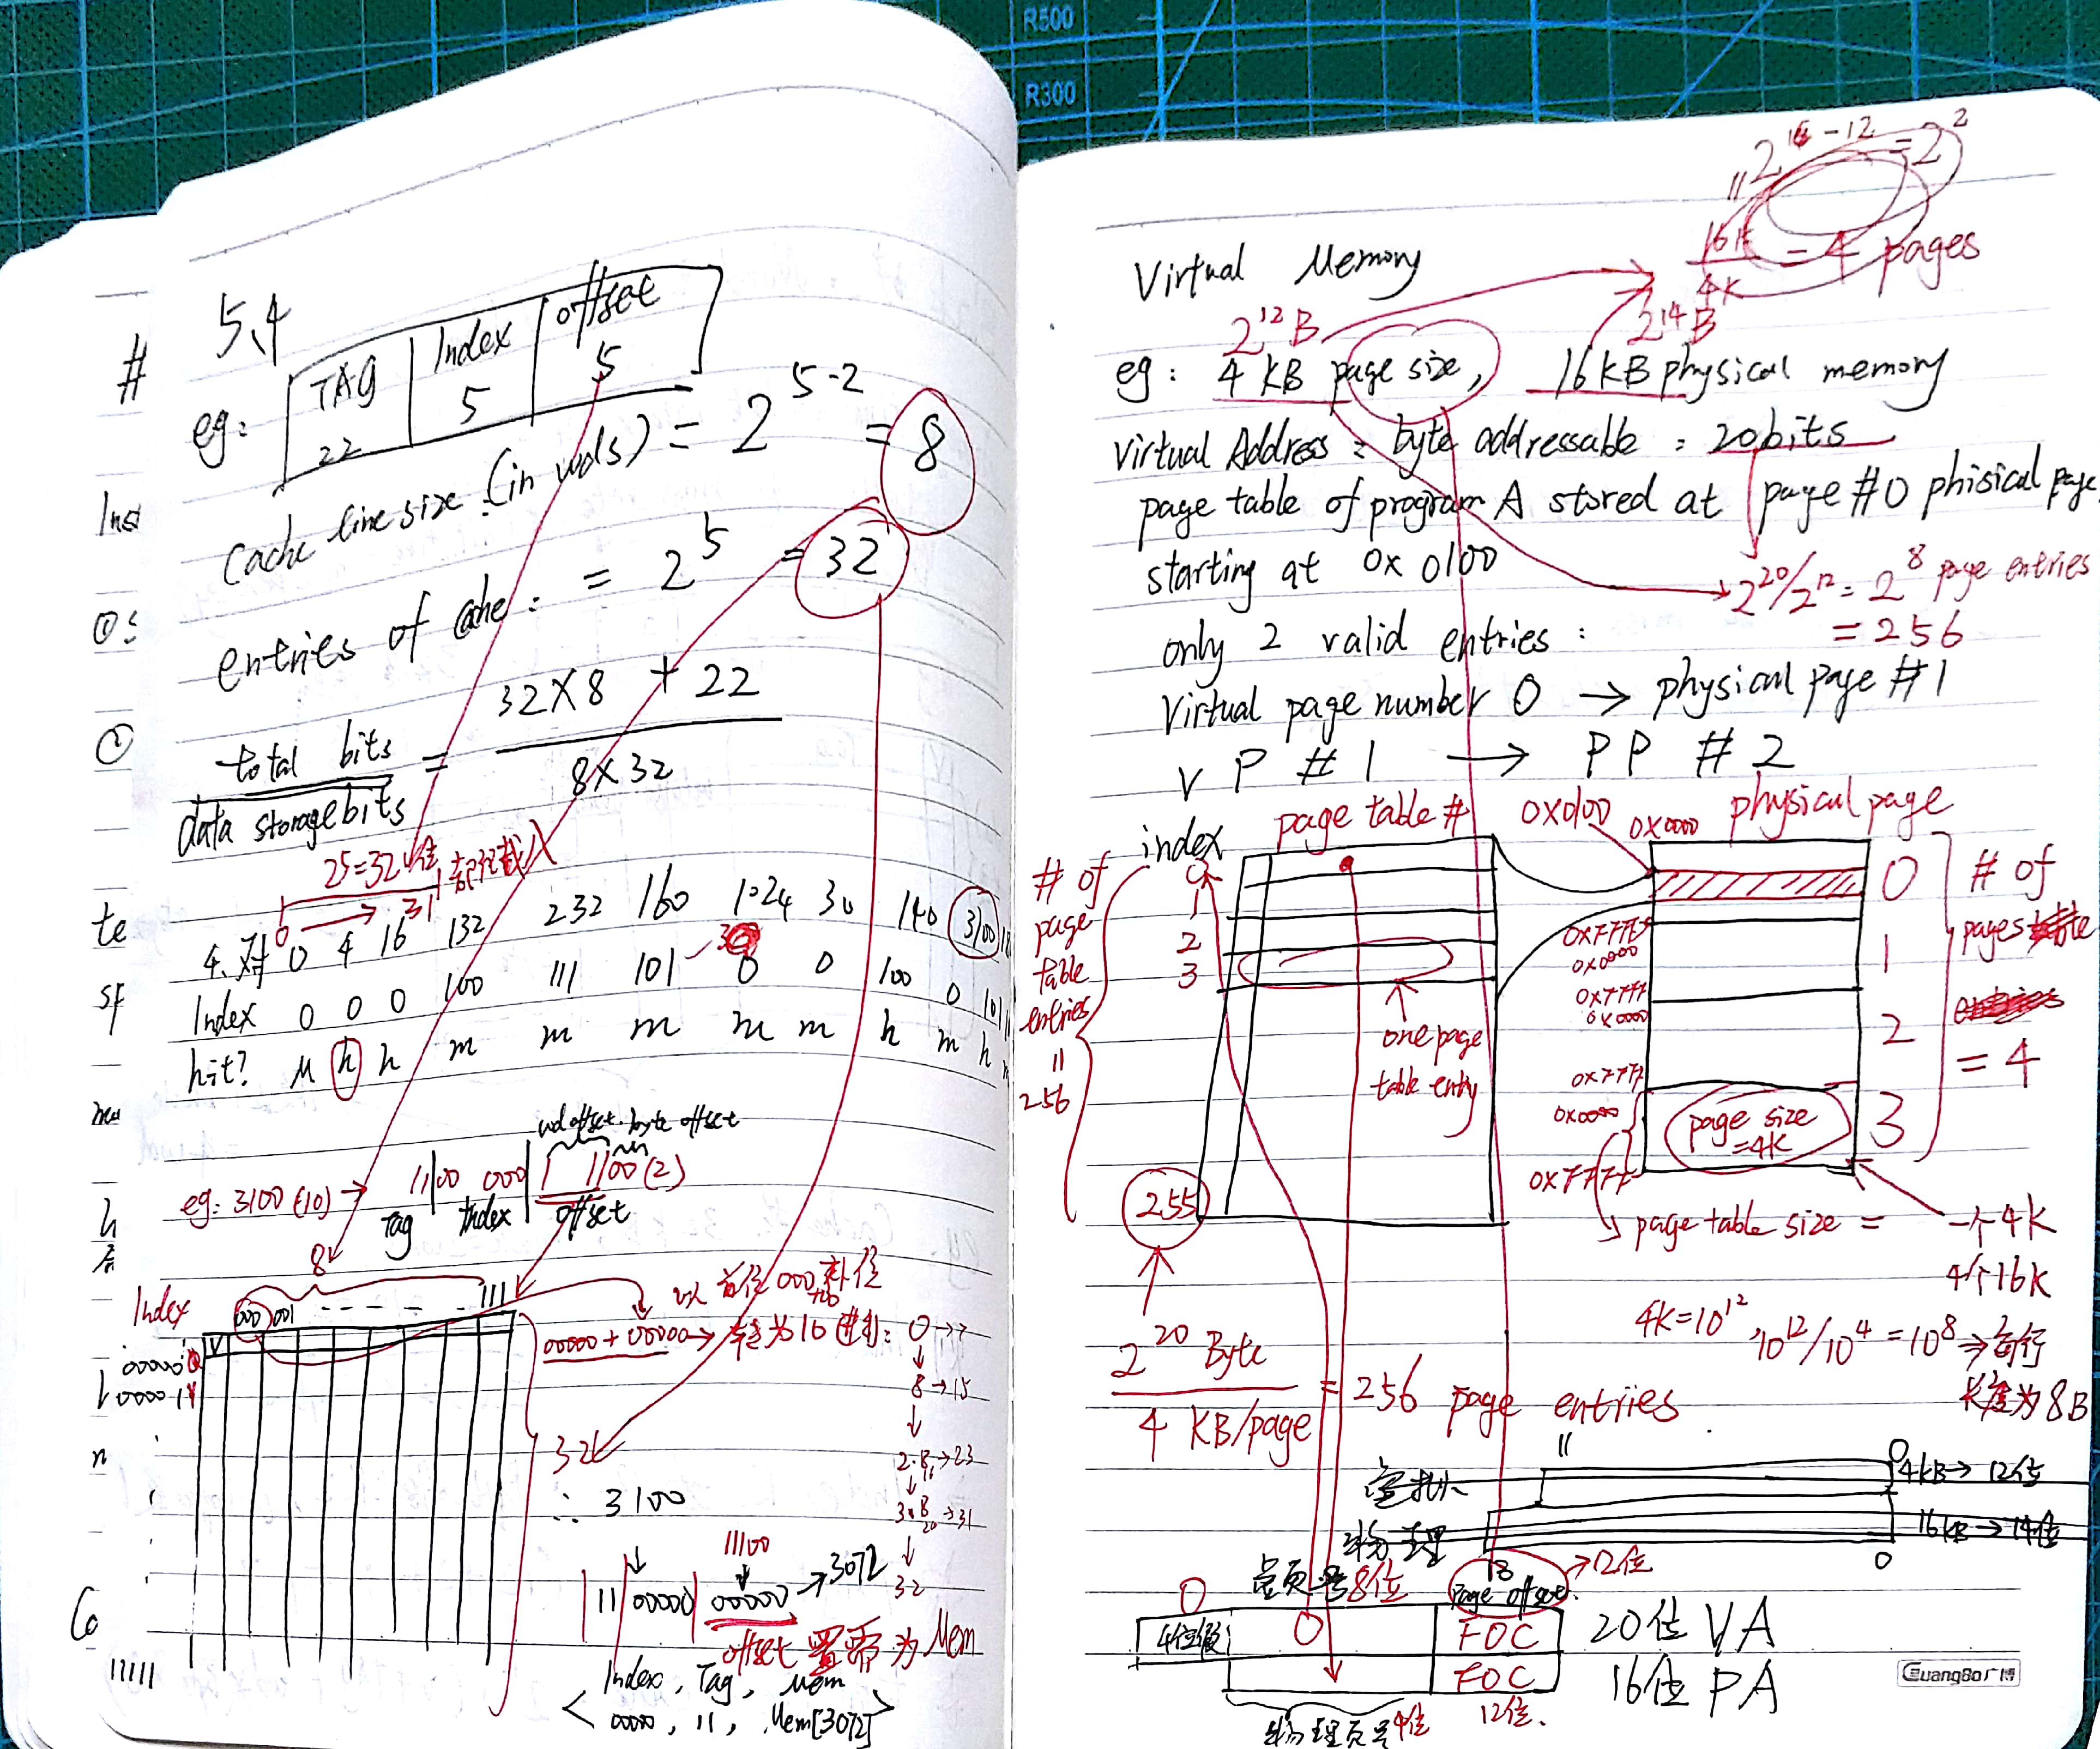 R500
R300
#
5.4
eg:
TAG
Index
offset
22
5
5
Cache line size (in wds) = 2^5-2 = 8
entries of cache: = 2^5 = 32
total bits
data storage bits
= 32×8 + 22
8×32
te
0 4 16 132 232 160 1024 30 140 3100
0 → 31
Index 0 0 0 100 111 101 0 0 100 0
hit? M h h m m m m m h m h
wd offset. byte offset
eg: 3100 (10) → 11|00 000|1 1100 (2)
Tag Index offset
8
Index
000 001 - - - - - 111
V
00000+00000 → 转为16进制: 0→7
8→15
2·8→23
3×8→31
32
32
∴ 3100
11100
11|00000|00000 → 3072
offset 置零为 Mem
Index, Tag, Mem
<00000, 11, Mem[3072]>
11111
Virtual Memory
2^16-12 = 2^2
16K
4K
= 4 pages
2^12 B
2^14 B
eg: 4 KB page size, 16KB physical memory
Virtual Address: byte addressable: 20bits
page table of program A stored at page #0 phisical page
starting at 0x 0100
2^20/2^12 = 2^8 page entries
= 256
only 2 valid entries:
Virtual page number 0 → physical page #1
V P # 1 → PP # 2
index
page table #
0x0100
0x0000
physical page
# of
page
table
entries
11
256
0
1
2
3
one page
table entry
255
0x0000
0x0000
0x0000
page size
=4K
0
1
2
3
# of
pages
= 4
page table size =
一个4K
4个16K
4K=10^12, 10^12/10^4 = 10^8 → 每行
长度为8B
2^20 Byte
4 KB/page
= 256 page entries
11
0
4KB→12位
物理
16KB→14位
0
13
→12位
0
虚页号8位
page offset
0
F0C
20位 VA
F0C
16位 PA
物理页号4位
12位.
GuangBo广博